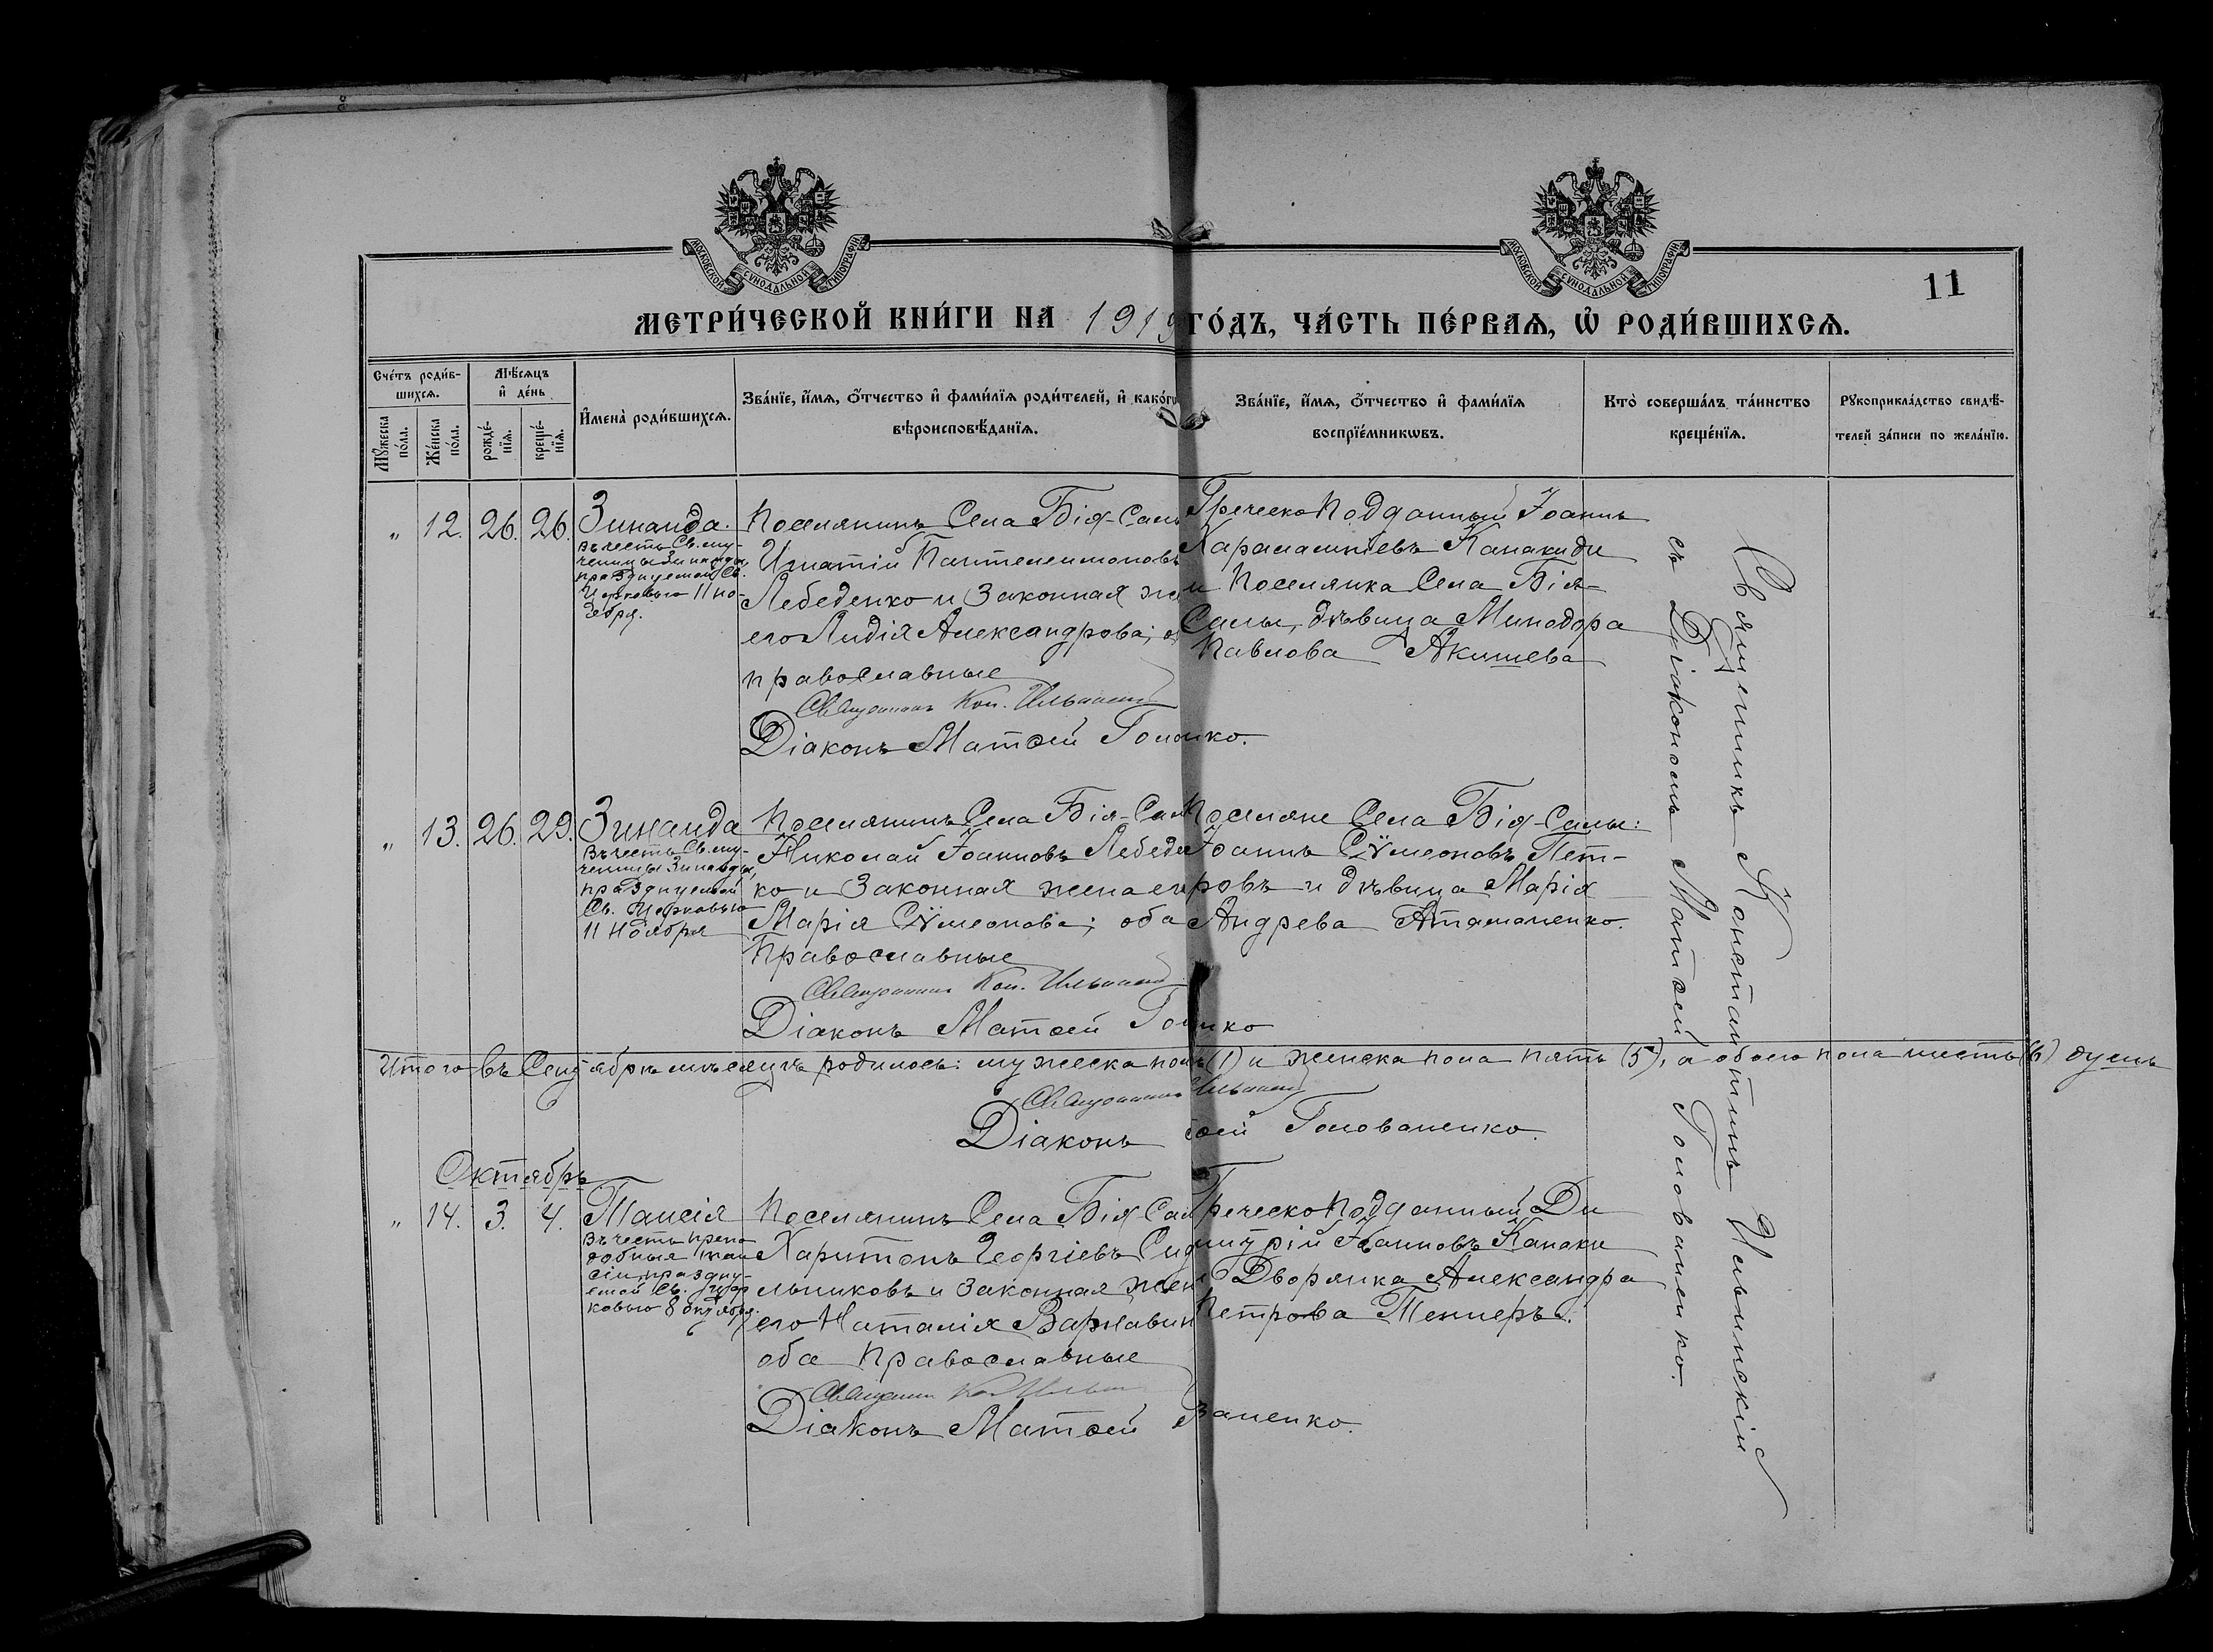 МОСКОВСКОЙ СУНОДАЛЬНОЙ ТИПОГРАФІИ
МОСКОВСКОЙ СУНОДАЛЬНОЙ ТИПОГРАФІИ
11
МЕТРИ́ЧЕСКОЙ КНИ́ГИ НА 1919 ГО́ДЪ, ЧА́СТЬ ПЕ́РВАѦ, Ѡ҆ РОДИ́ВШИХСѦ.
Сче́тъ роди́в-
шихсѧ.
Мꙋ́жеска
по́ла.
Же́нска
по́ла.
Мѣ́сѧцъ
и҆ де́нь
рожде́-
нїѧ.
креще́-
нїѧ.
И҆мена̀ роди́вшихсѧ.
Зва́нїе, и҆́мѧ, ѻ҆́тчество и҆ фами́лїѧ роди́телей, и҆ како́гѡ
вѣроисповѣ́данїѧ.
Зва́нїе, и҆́мѧ, ѻ҆́тчество и҆ фами́лїѧ
воспрїе́мникѡвъ.
Кто̀ соверша́лъ та́инство
креще́нїѧ.
Рꙋкоприкла́дство свидѣ́-
телей за́писи по жела́нїю.
" 12. 26. 26.
Зинаида.
Въ честь Св. му-
ченицы Зинаиды,
празднуемой Св.
Церковью 11 но-
ября.
Поселянинъ Села Бія-Салы
Игнатій Пантелеимоновъ
Лебеденко и Законная
его Лидія Александрова;
православные
Священникъ Кон. Ильинскій
Діаконъ Матѳей
Греческо Подданный Іоаннъ
Харалампіевъ Канакиди
и Поселянка Села Бія-
Салы, дѣвица Минодора
Павлова Акишева
" 13. 26. 29.
Зинаида
Въ честь Св. му-
ченицы Зинаиды,
празднуемой
Св. Церковью
11 Ноября
Поселянинъ Села Бія-Салы
Николай Іоанновъ Лебеден
ко и Законная жена его
Марія Сѵмеонова; оба
Православные
Священникъ Кон. Ильинскій
Діаконъ Матѳей
Поселяне Села Бія-Салы:
Іоаннъ Сѵмеоновъ Пет-
ровъ и дѣвица Марія
Андрева Атаманенко.
Итого въ Сентябрѣ мѣсяцѣ родилось: мужеска полъ (1) и женска пола пять (5), а обоего пола шесть (6) душъ
Священникъ Ильинскій
Діаконъ ѳей Голованенко.
Октябрь
" 14. 3. 4.
Таисія
Въ честь препо
добныя Таи
сіи, праздну-
емой Св. Цер
ковью 8 октября.
Поселянинъ Села Бія Сал
Харитонъ Георгіевъ Сид
льниковъ и Законная жен
его Наталія Варнавин
оба Православные
Священникъ
Діаконъ Матѳей ваненко.
Греческо Подданный Ди
митрій Іоанновъ Канаки
Дворянка Александра
Петрова
Священникъ Константинъ Ильинскій
съ Діакономъ Матѳей Голованенко.